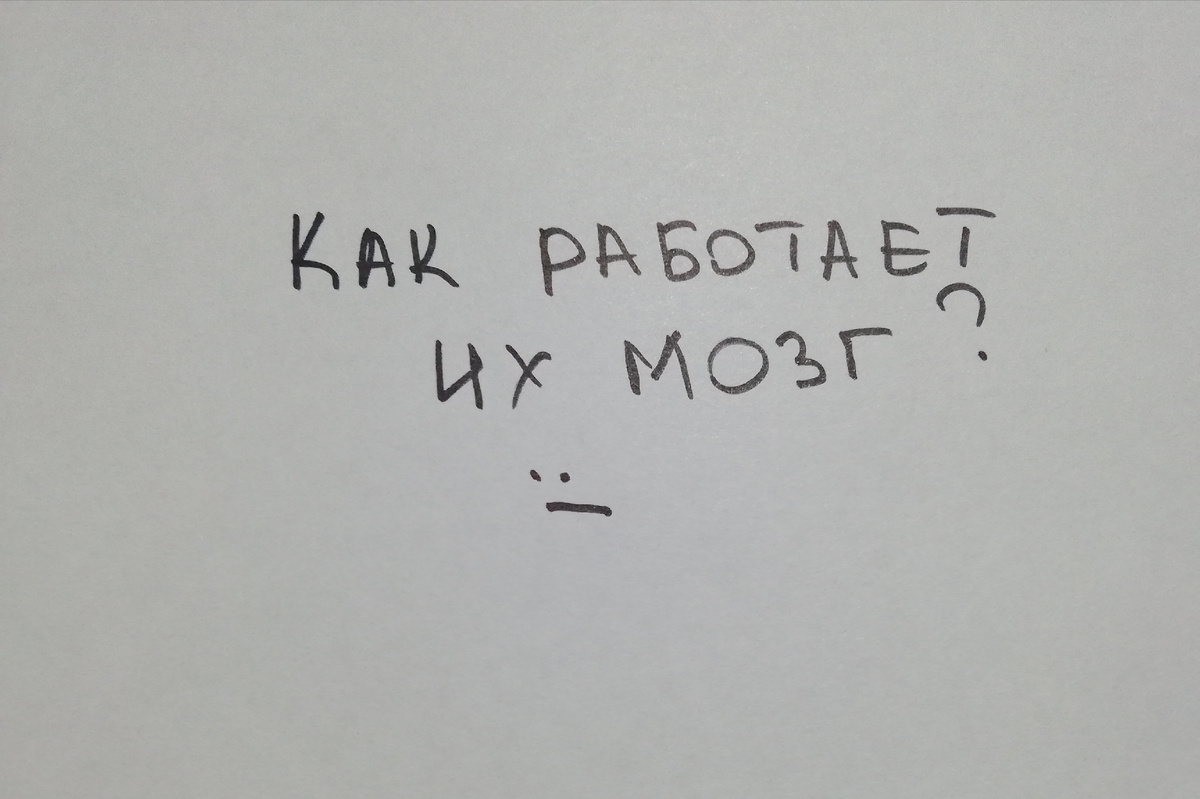 КАК РАБОТАЕТ
ИХ МОЗГ?